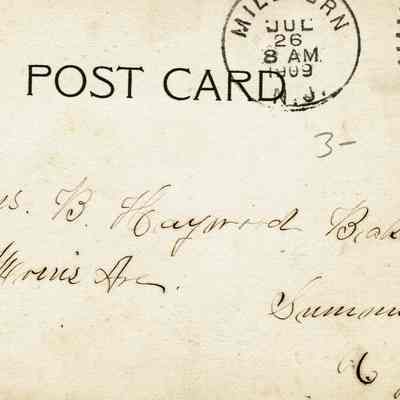 MILLBURN
JUL
26
8 AM
1909
N.J.
POST CARD
3-
s. B. Haywood Bak
Morris Ave.
Summi